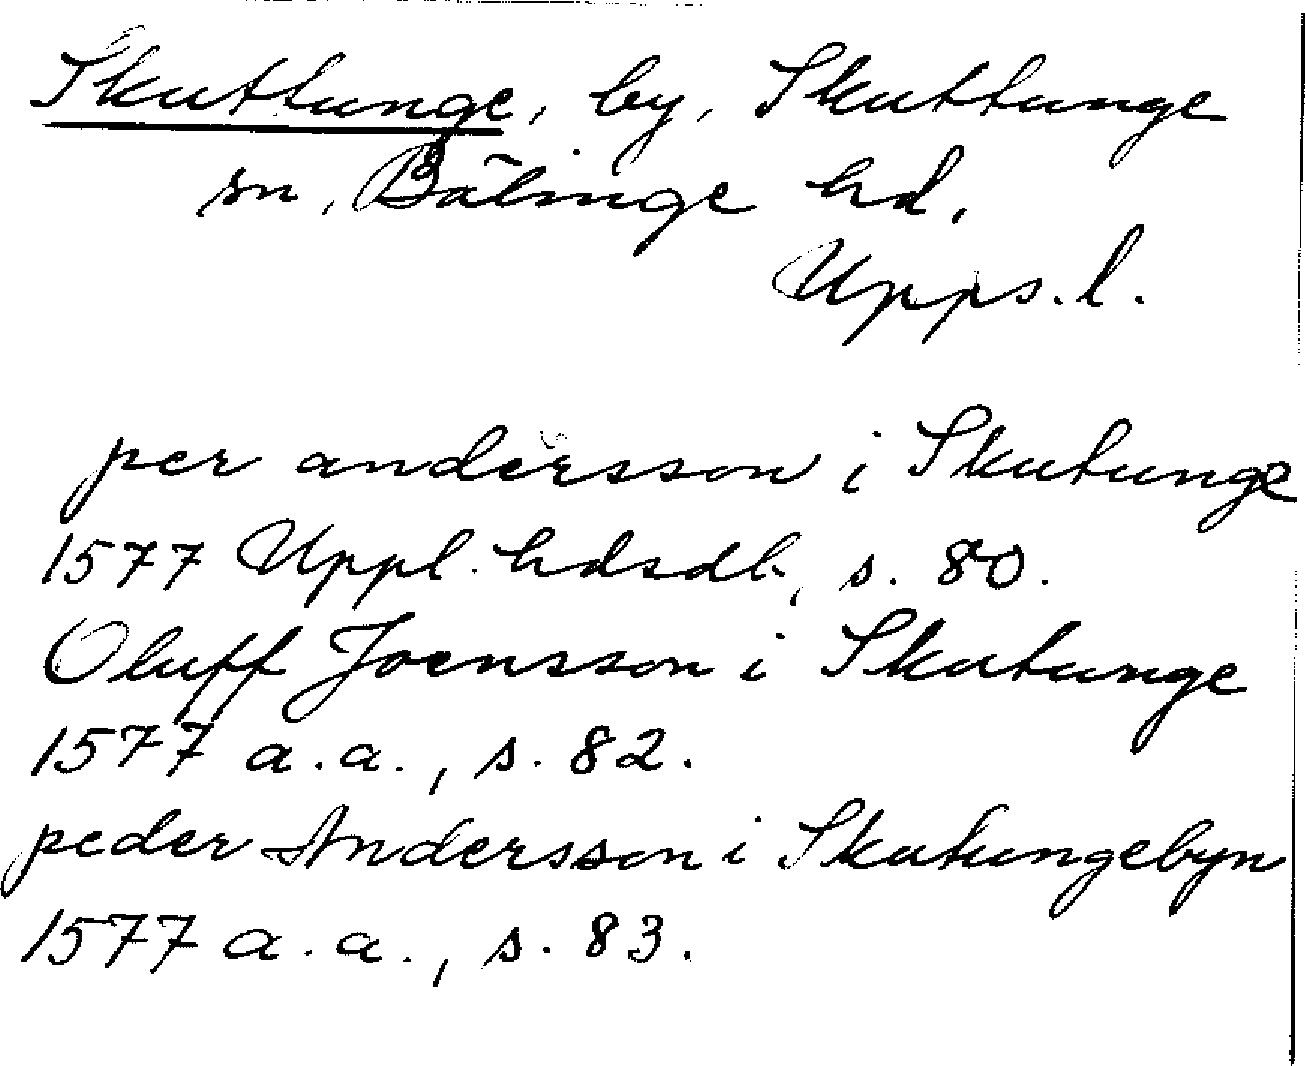 Skuttunge, by, Skuttunge
sn, Bälinge hd,
Upps. l.
per andersson i Skutunge
1577 Uppl. hdsdb, s. 80.
Oluff Joensson i Skutunge
1577 a.a., s. 82.
peder Andersson i Skutungebyn
1577 a.a., s. 83.